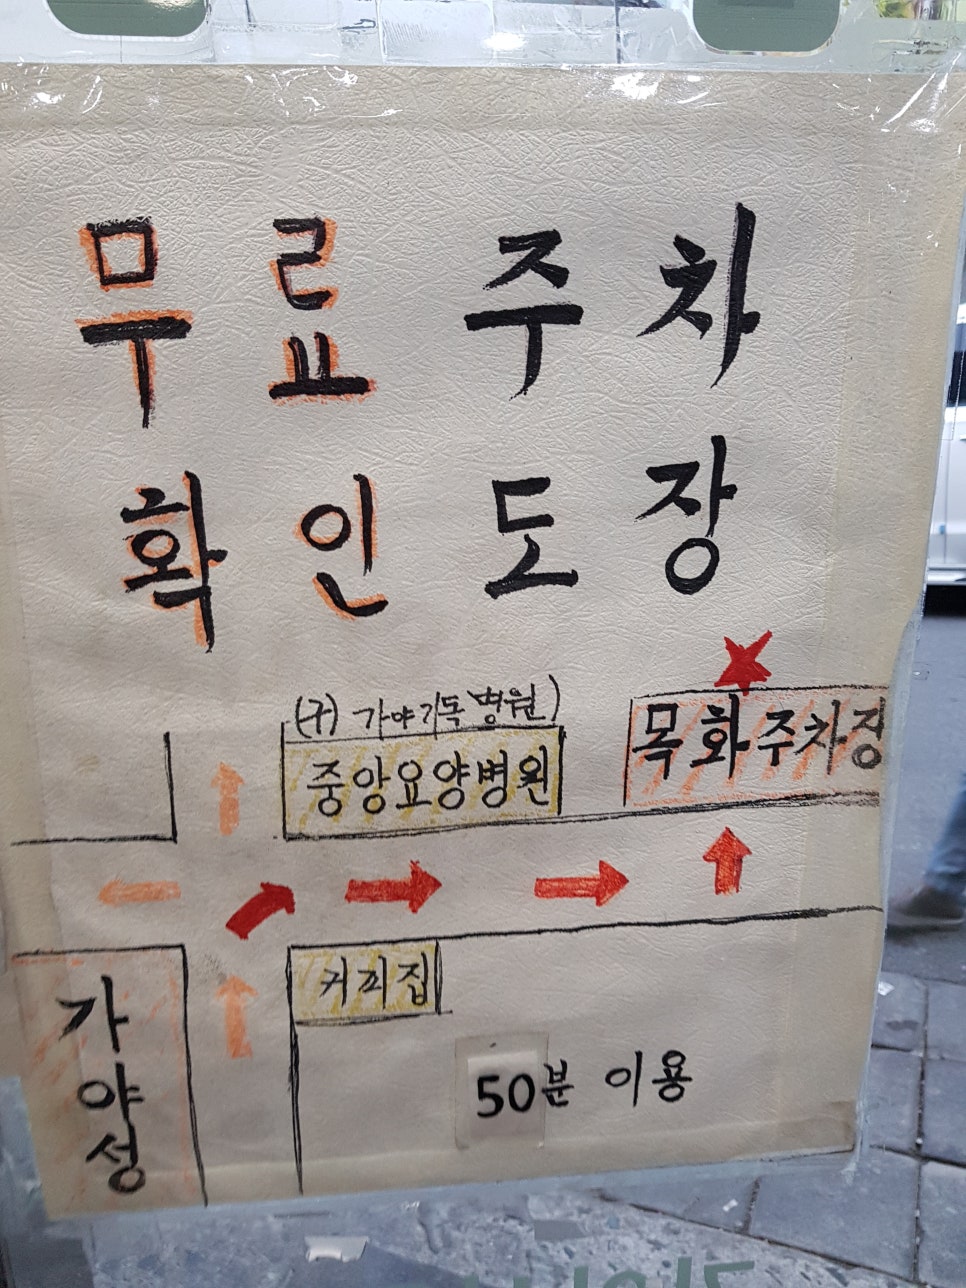 무료 주차
확인 도장
(구) 가야기독병원)
중앙요양병원
목화주차장
커피집
가야성
50분 이용